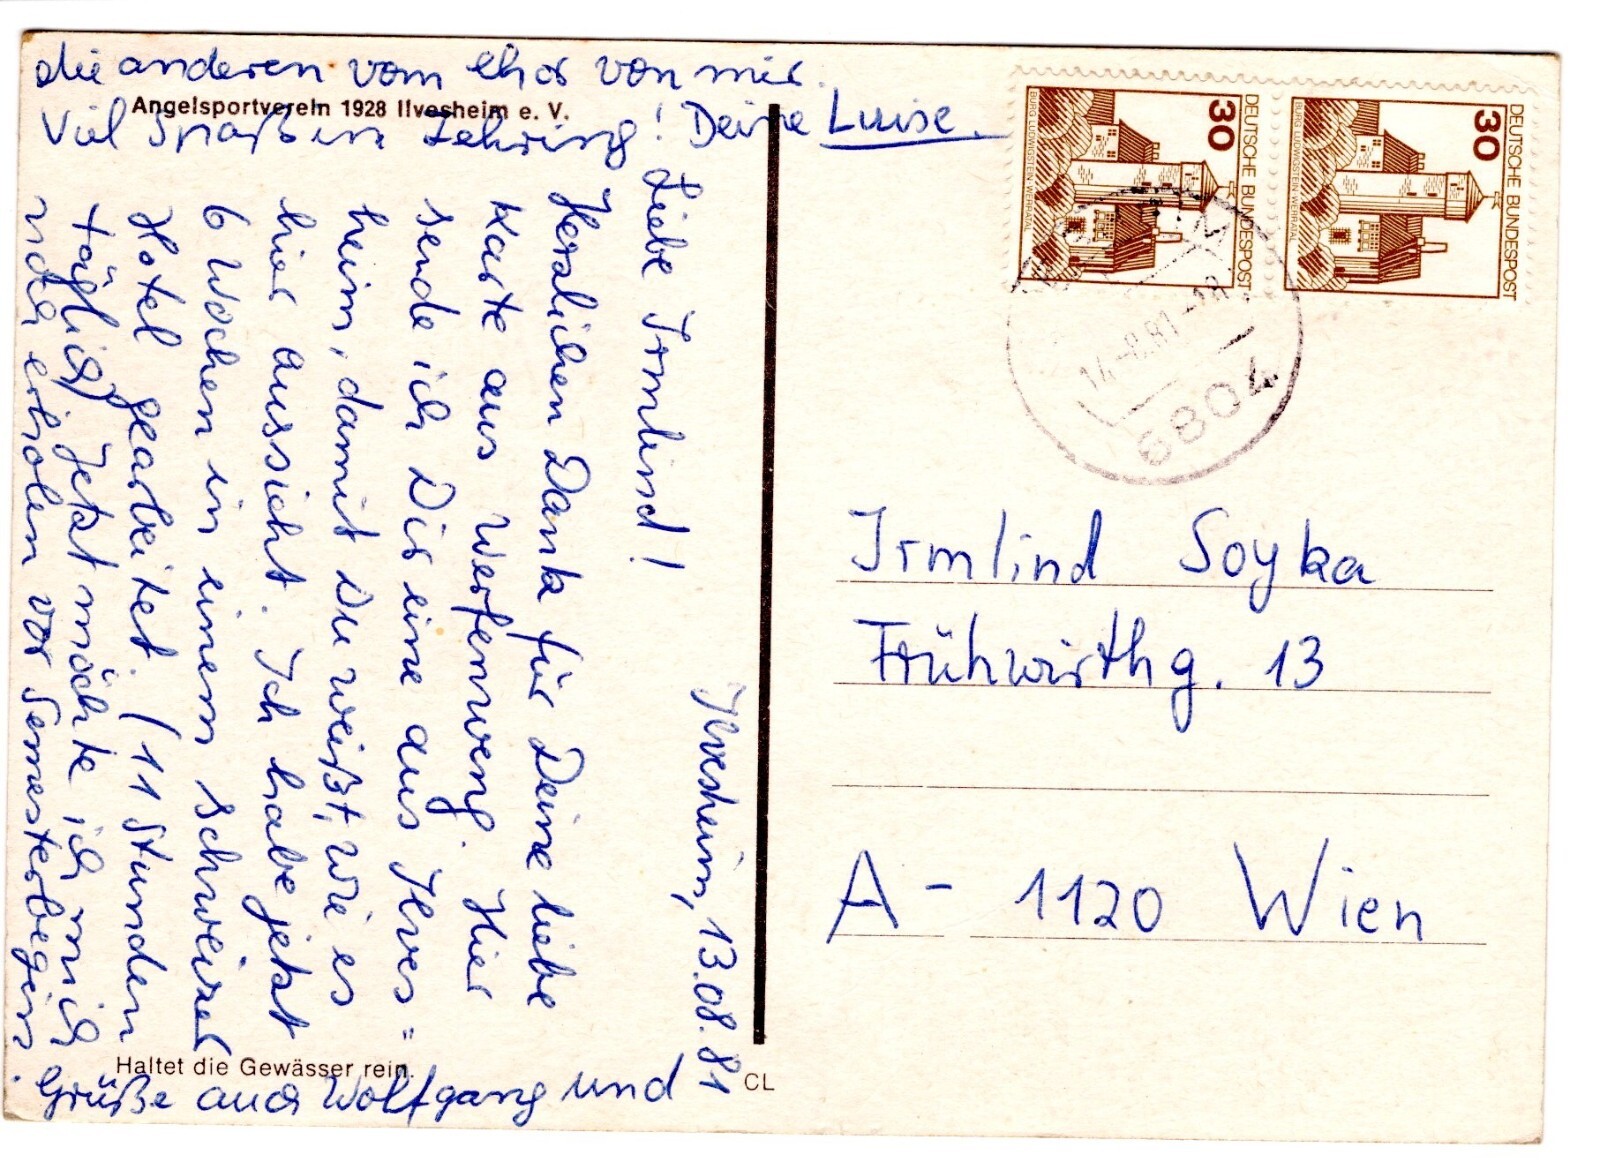 Angelsportverein 1928 Ilvesheim e. V.
Ilvesheim, 13.08.81
Liebe Irmlind!
Herzlichen Dank für Deine liebe
Karte aus Werfenweng. Hier
sende ich Dir eine aus Ilves=
heim, damit Du weißt, wie es
hier aussieht. Ich habe jetzt
6 Wochen in einem Schweizer
Hotel gearbeitet. (11 Stunden
täglich) Jetzt möchte ich mich
noch erholen vor Semesterbeginn.
Grüße auch Wolfgang und
die anderen vom Chor von mir.
Viel Spaß in Zehring! Deine Luise.
Haltet die Gewässer rein.
CL
30
DEUTSCHE BUNDESPOST
BURG LUDWIGSTEIN WERRATAL
30
DEUTSCHE BUNDESPOST
BURG LUDWIGSTEIN WERRATAL
14.-8.81-18
6804
Irmlind Soyka
Frühwirthg. 13
A - 1120 Wien